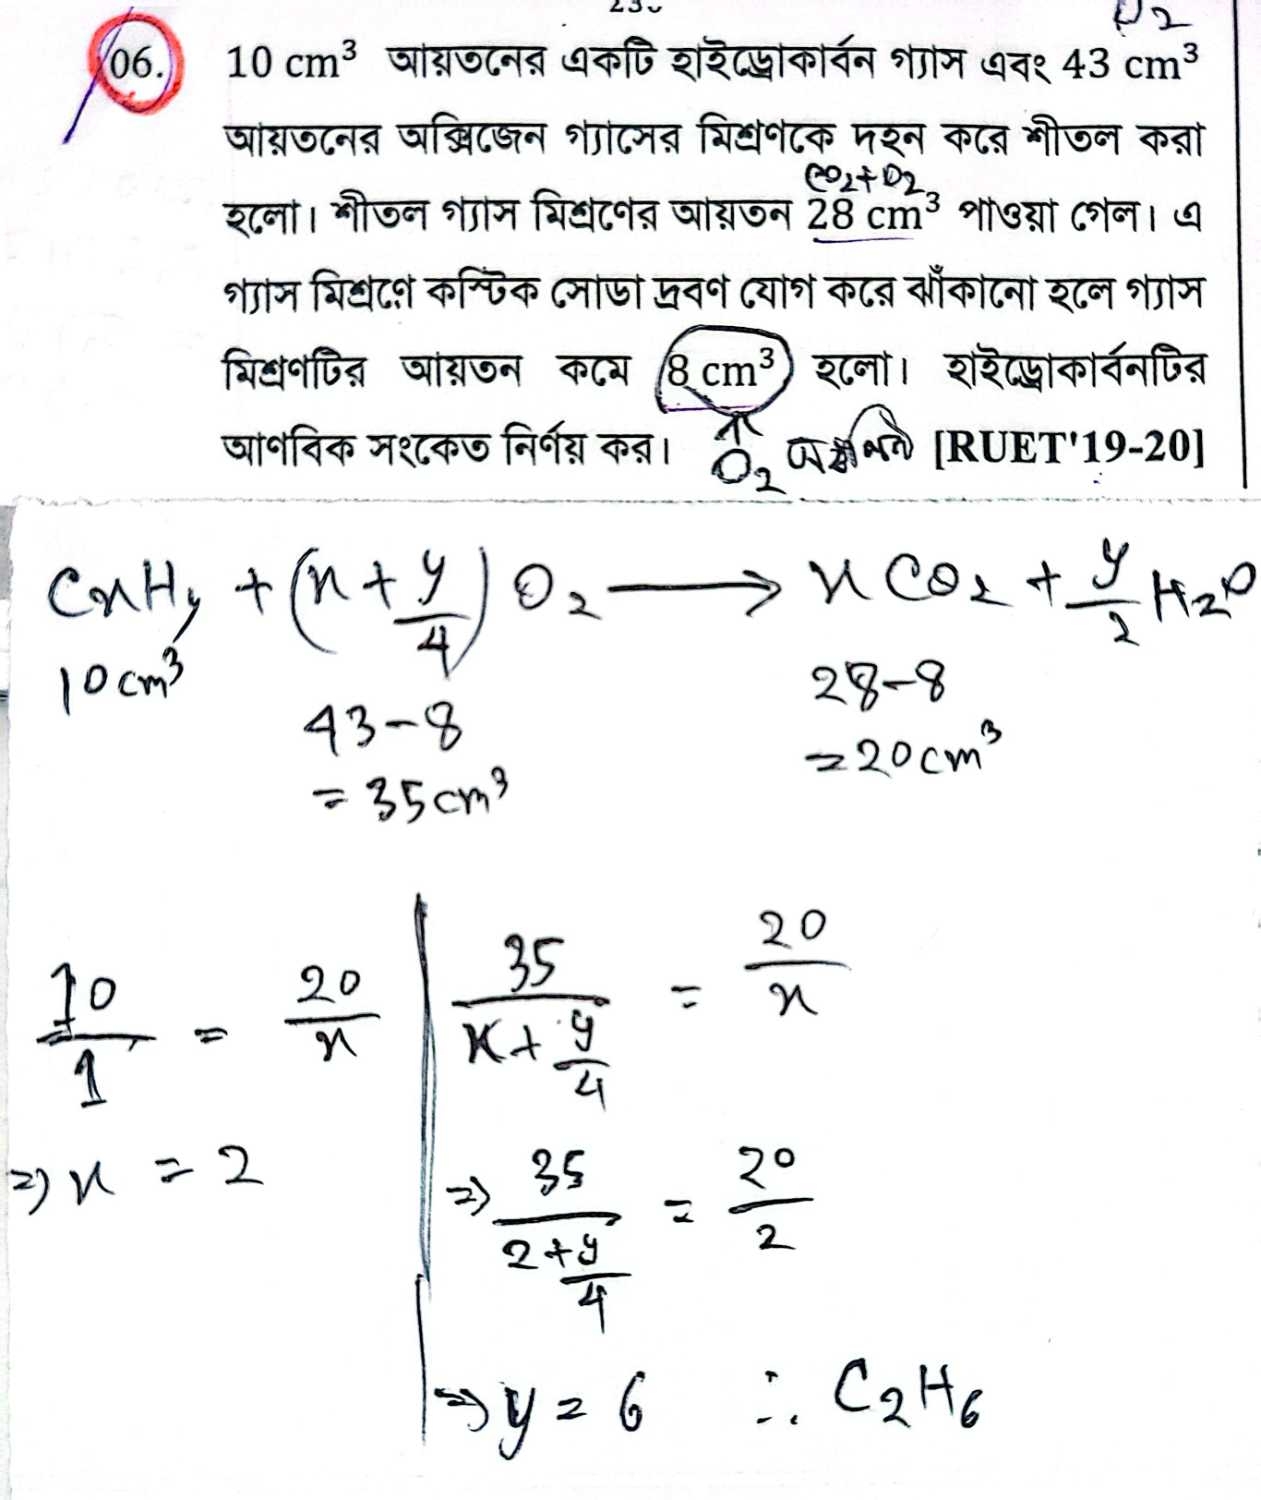 O2
06. 10 cm³ আয়তনের একটি হাইড্রোকার্বন গ্যাস এবং 43 cm³
আয়তনের অক্সিজেন গ্যাসের মিশ্রণকে দহন করে শীতল করা
CO2+O2
হলো। শীতল গ্যাস মিশ্রণের আয়তন 28 cm³ পাওয়া গেল। এ
গ্যাস মিশ্রণে কস্টিক সোডা দ্রবণ যোগ করে ঝাঁকানো হলে গ্যাস
মিশ্রণটির আয়তন কমে 8 cm³ হলো। হাইড্রোকার্বনটির
আণবিক সংকেত নির্ণয় কর। [RUET'19-20]
↑
O2
CxHy + (x + y/4) O2 ⟶ x CO2 + y/2 H2O
10 cm³
43-8
= 35 cm³
28-8
= 20 cm³
10/1 = 20/x
⇒ x = 2
35/(x + y/4) = 20/x
⇒ 35/(2 + y/4) = 20/2
⇒ y = 6 ∴ C2H6